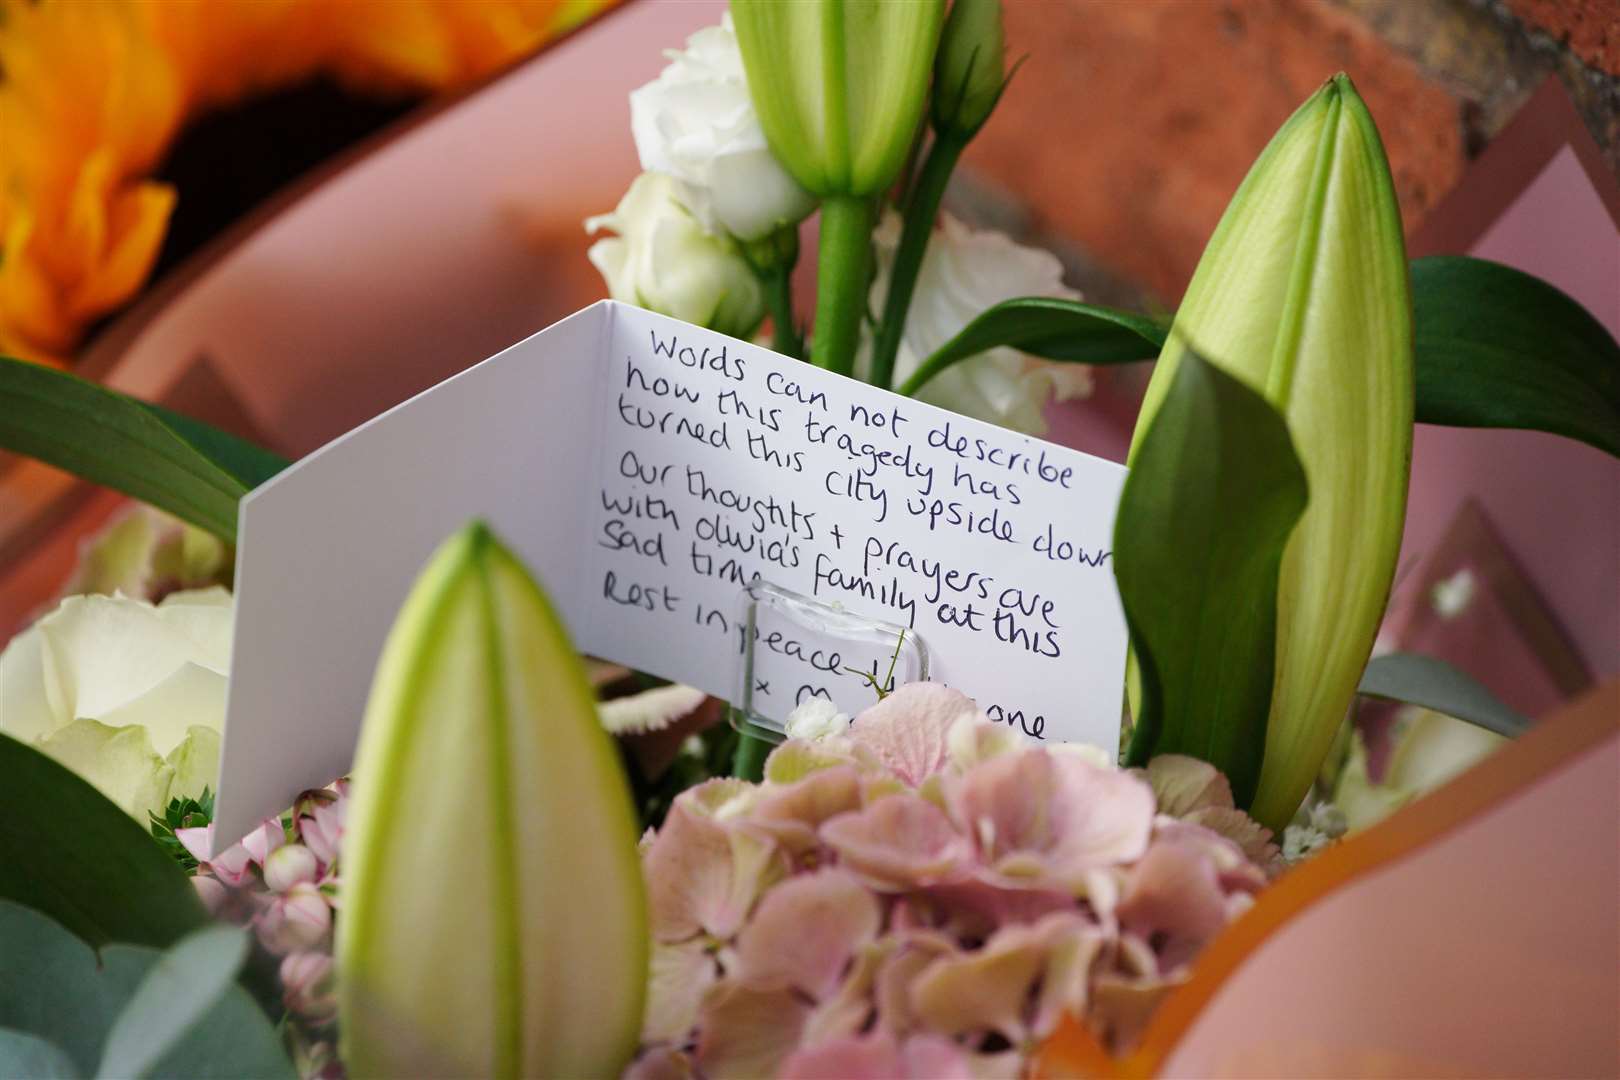 Words can not describe
how this tragedy has
turned this city upside down
Our thoughts + prayers are
with olivia's family at this
sad time
Rest in peace
x one